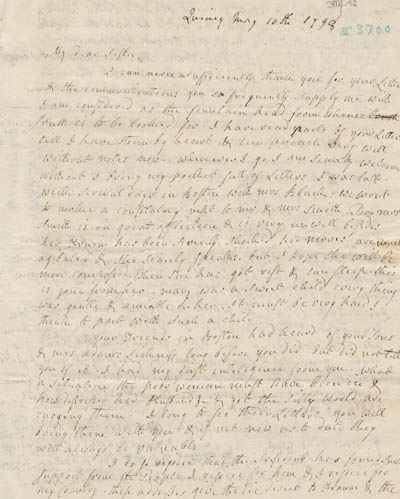 Quincy May 10th 1798
3700
My Dear Sister
I can never sufficiently thank you for your Letters
& the communications you so frequently supply me with
I am considered as the fountain head from whence
is to be looked for. I have read parts of your Letters
till I have them by heart & can preach very well
without notes now. wherever I go I am scarcely welcome
without I bring my pocket full of Letters. I was last
week several days in Boston with mrs Black. we went
to make a consolatary visit to mr & mrs Smith. Poor mrs
Smith is in great affliction & is very unwell besides
her has been severely shock'd her nerves are much
agitated & she scarcly speaks. but I hope she will be
more composed when she has got rest & can sleep this
is your
mary was a sweet child every thing
was gentle & amiable in her. It must be very hard I
think to part with such a child
your Friends in Boston had heard of your sons
& mrs Adams sickness long before you did but did not tell
you of it I had my first intelligence from you. what
a situation the poor woman must have been in &
how distress'd her Husband & yet the silly world are
envying them. I long to see their Letters. you will
bring them with you & if not new as to date they
will always be valuable
I do rejoice that the President has found such
support from the People I rejoice for him & I rejoice for
my Country. these addresses give the to France & the